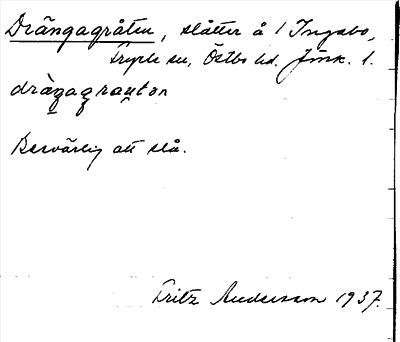 Drängagråten, slåtter å 1 Ingsbo,
Tryde sn, Östbo hd. Jönk. l.
dràŋagrauton
Besvärlig att slå.
Fritz Andersson 1937.